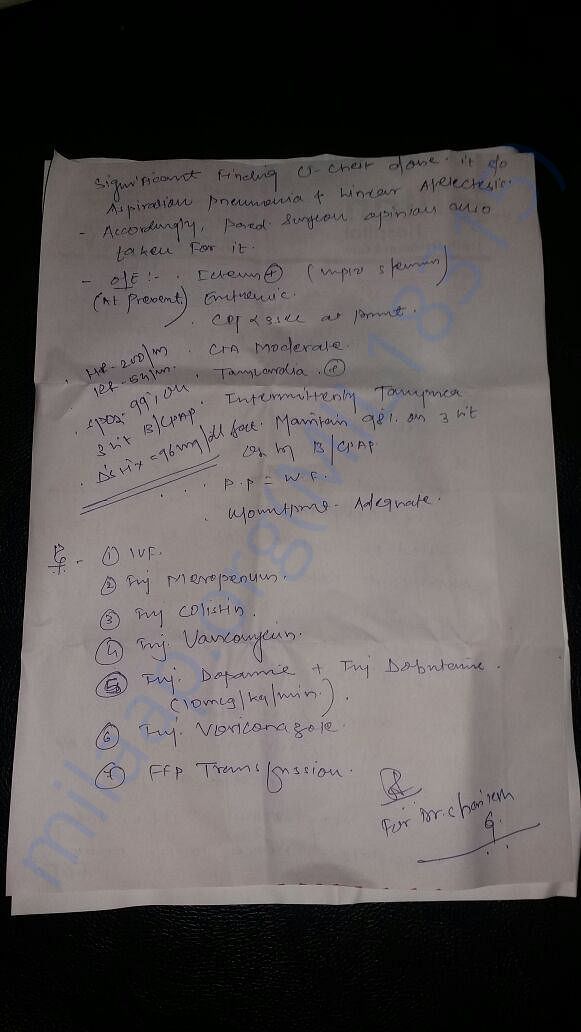 Significant Finding CT-Chest done. it s/o
Aspiration pneumonia + Linear Atelectesis.
- Accordingly, paed. Surgeon opinion also
taken For it.
- O/E :- . Icterus ⊕ (upto sternum)
(At present)
. CRT < 3 sec at
HR- 200/m . CTA Moderate.
RR- 54/m. . Tachycardia.
. SPO2- 99% on . Intermittently Tachypnea
3 lit B/CPAP. Maintain 98% on 3 lit
. D'stix = 96 mg/dl O2 by B/CPAP
. P.P = W.F.
. Adequate.
Rx - ① IVF.
② Inj Meropenum.
③ Inj Colistin.
④ Inj. Vancomycin.
⑤ Inj. Dopamine + Inj. Dobutamine.
(10mcg/kg/min.).
⑥ Inj. Voriconazole.
⑦ FFP Transfussion.
For Dr.
milaap.org(MIL18315)